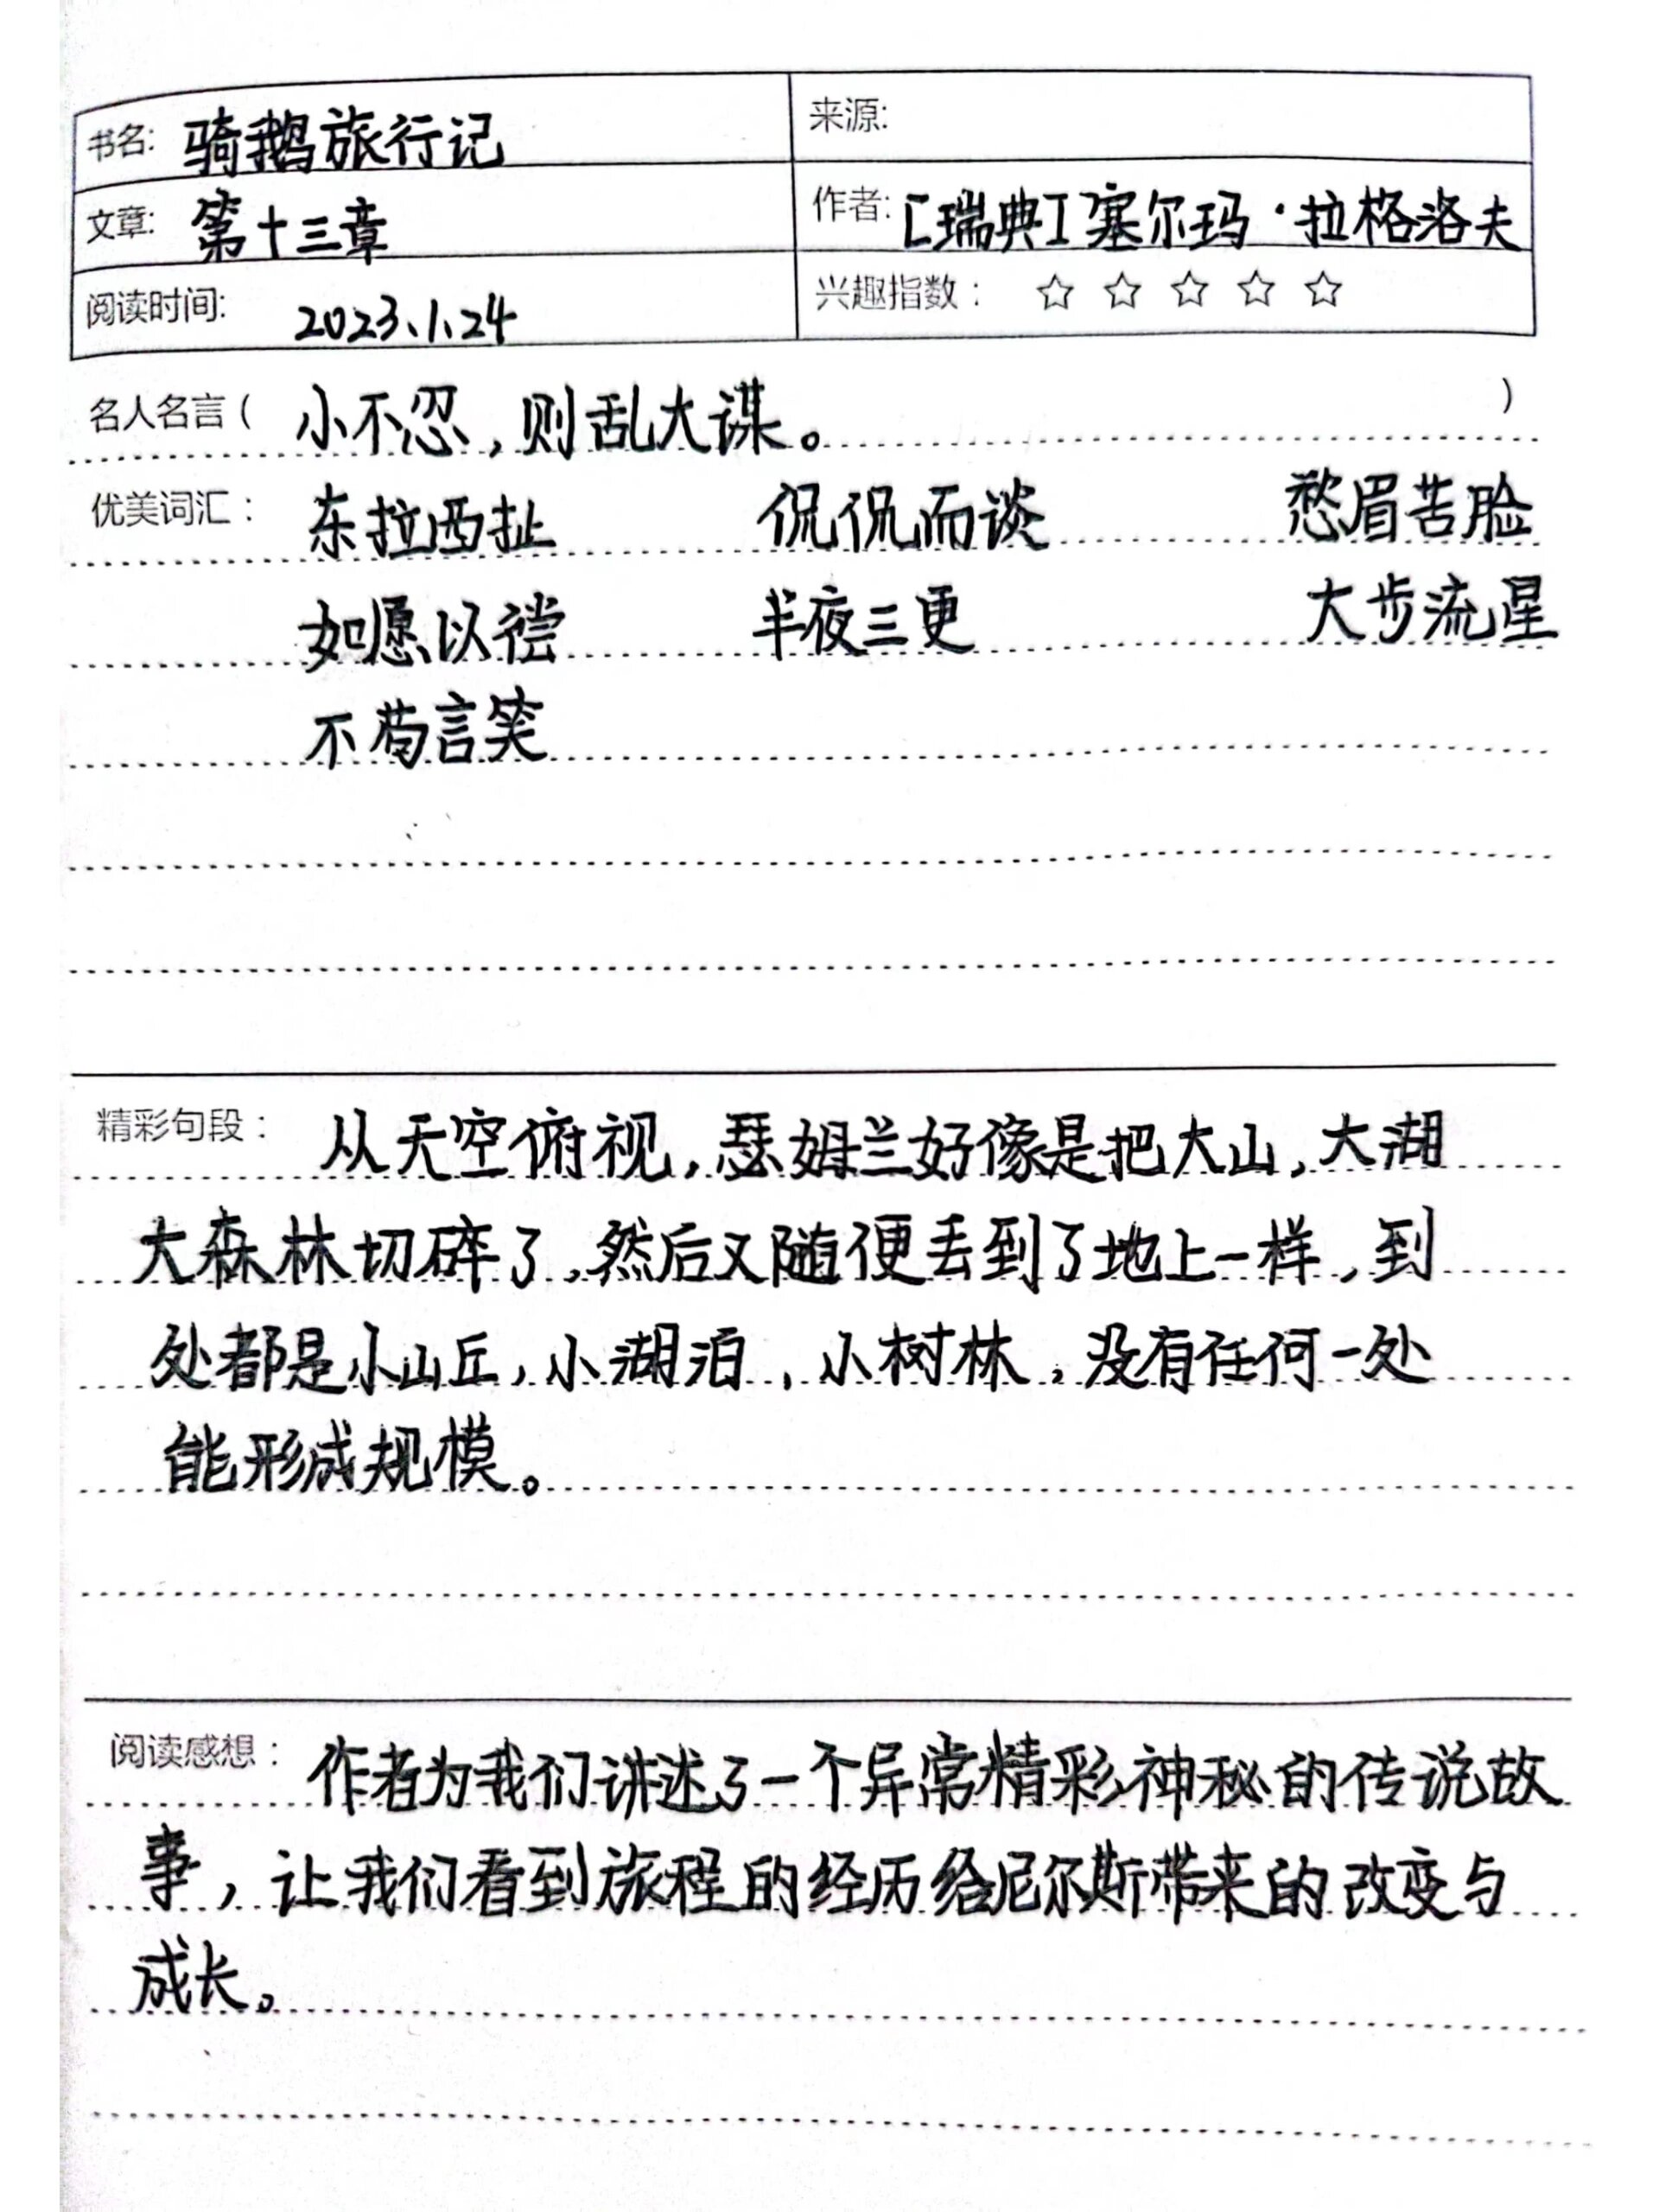 书名: 骑鹅旅行记 来源:
文章: 第十三章 作者: [瑞典]塞尔玛·拉格洛夫
阅读时间: 2023、1、24 兴趣指数: ☆ ☆ ☆ ☆ ☆
名人名言( 小不忍,则乱大谋。 )
优美词汇: 东拉西扯 侃侃而谈 愁眉苦脸
如愿以偿 半夜三更 大步流星
不苟言笑
精彩句段: 从天空俯视,瑟姆兰好像是把大山,大湖
大森林切碎了,然后又随便丢到了地上一样,到
处都是小山丘,小湖泊,小树林,没有任何一处
能形成规模。
阅读感想: 作者为我们讲述了一个异常精彩神秘的传说故
事,让我们看到旅程的经历给尼尔斯带来的改变与
成长。